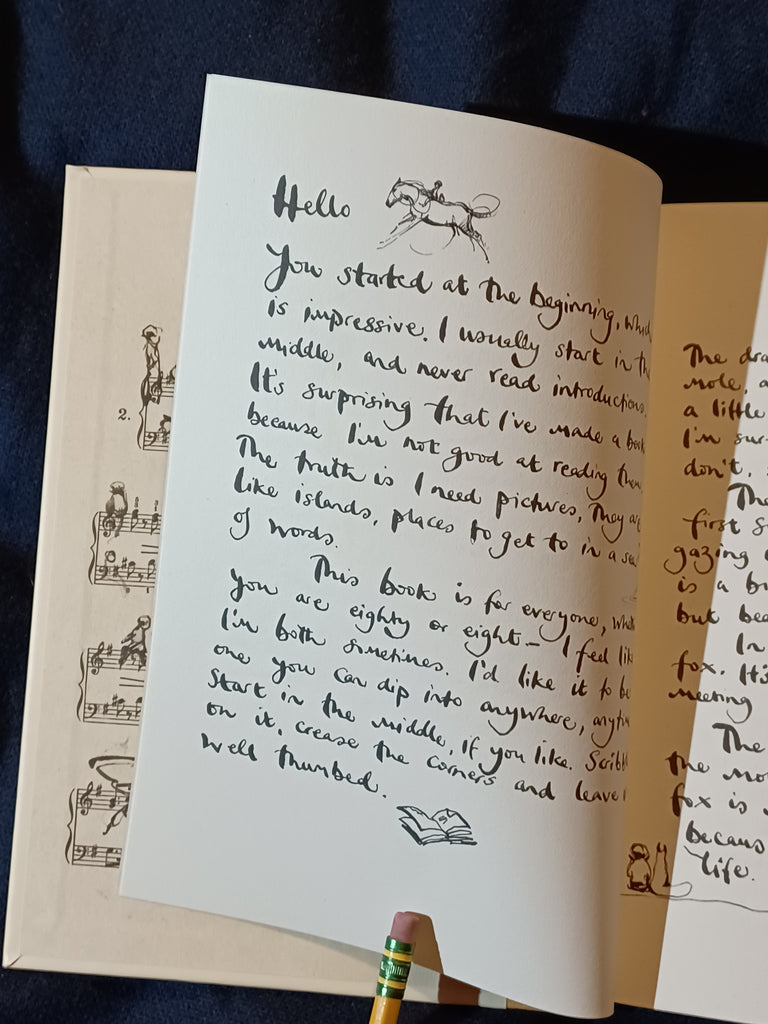 2.
Hello
You started at the beginning,
is impressive. I usually start in
middle, and never read introductions.
It's surprising that I've made a book
because I'm not good at reading
The truth is I need pictures, They are
like islands, places to get to in a
of words.
This book is for everyone,
you are eighty or eight - I feel
I'm both sometimes. I'd like it to be
one you can dip into anywhere,
Start in the middle, if you like.
on it, crease the corners and leave
well thumbed.
The
mole, a
a little
I'm
don't,
The
first
gazing
is a
but
In
fox. It's
meeting
The
the
fox is
life.